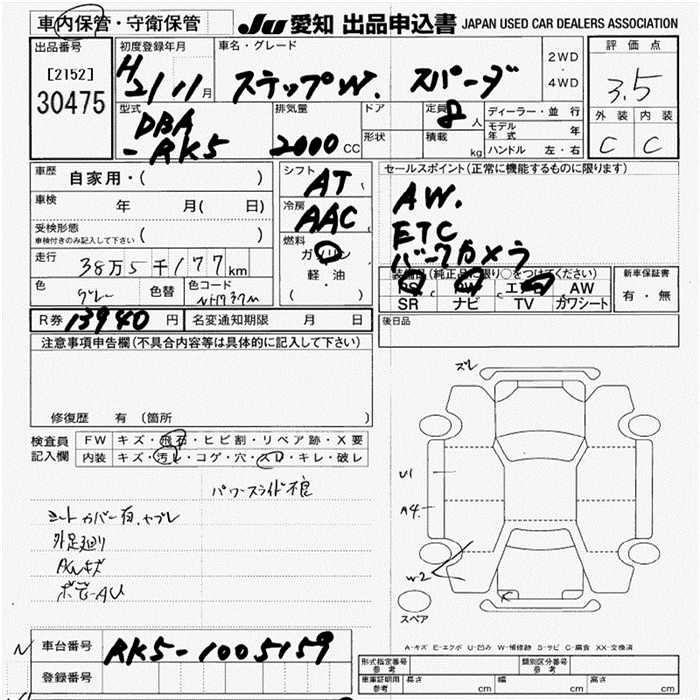 車内保管・守衛保管 JU 愛知 出品申込書 JAPAN USED CAR DEALERS ASSOCIATION
出品番号 初度登録年月 車名・グレード 評価点
[2152]
30475
H21/11月 ステップW. スパーダ 2WD・4WD 3.5
型式 DBA-RK5
排気量 2000 CC
ドア
形状
定員 8 人
積載 kg
ディーラー・並行
モデル年式 年
ハンドル 左・右
外装 内装
C C
車歴 自家用・( )
車検 年 月( 日)
受検形態 ( )
車検付きのみ記入して下さい
走行 38万5千177km
色 グレー 色替 色コード NH737M
シフト AT
冷房 AAC
燃料 ガソリン
軽油
( )
セールスポイント(正常に機能するものに限ります)
AW.
ETC
バックカメラ
装備品(純正品に限り○をつけてください)
エアB AW
SR ナビ TV カワシート
新車保証書
有・無
R券 13940円 名変通知期限 月 日
後日品
注意事項申告欄(不具合内容等は具体的に記入して下さい)
修復歴 有(箇所 )
検査員記入欄
FW キズ・飛石・ヒビ割・リペア跡・X要
内装 キズ・汚レ・コゲ・穴・スレ・キレ・破レ
パワースライド不良
シートカバー有.ヤブレ
外足廻り
AWキズ
ボデーAU
ズレ
U1
A4
W2
スペア
A-キズ E-エクボ U-凹み W-補修跡 S-サビ C-腐食 XX-交換済
車台番号 RK5-1005159
登録番号
形式指定番号 参考 類別区分番号 参考
車庫証明用 参考 長さ cm 幅 cm 高さ cm